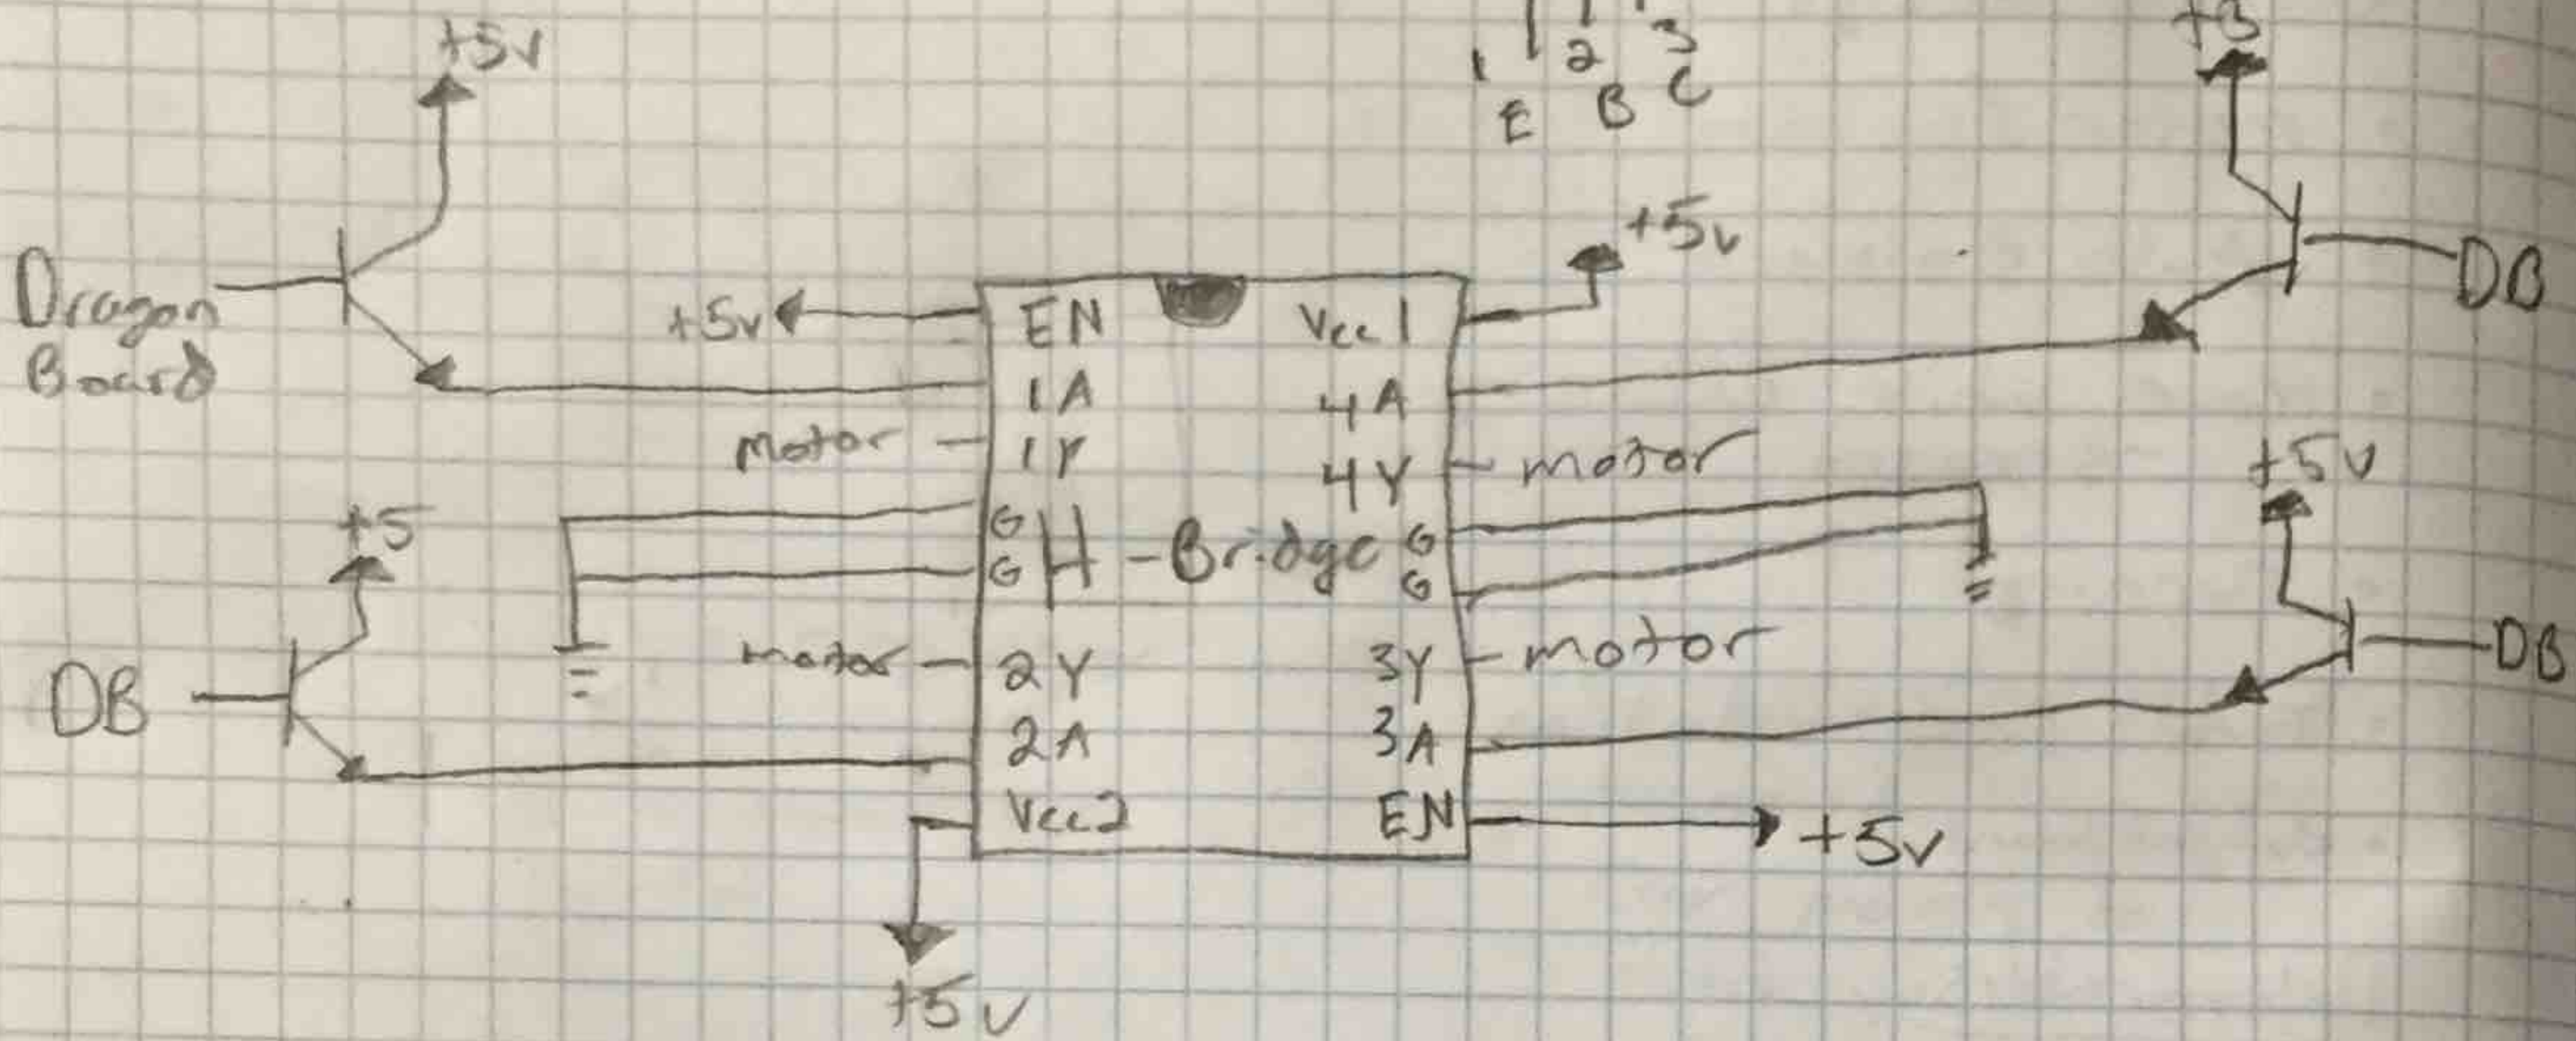 +5v
1 2 3
E B C
Dragon
Board
+5v
+5v
DB
EN
Vcc1
1A
4A
motor
1Y
4Y
motor
+5
+5v
G
G
H-Bridge
G
G
DB
motor
2Y
3Y
motor
DB
2A
3A
Vcc2
EN
+5v
+5v